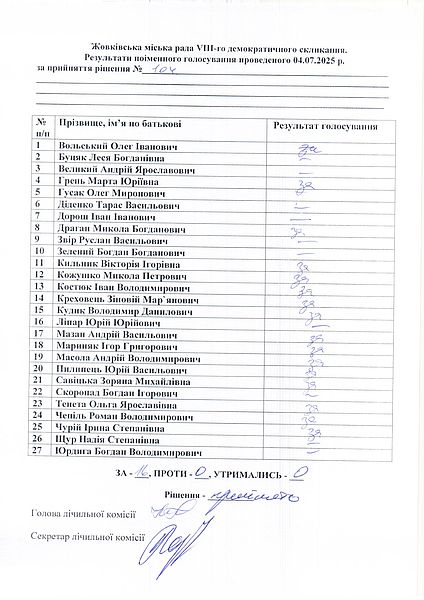 Жовківська міська рада VIII-го демократичного скликання.
Результати поіменного голосування проведеного 04.07.2025 р.
за прийняття рішення № 104
№ п/п Прізвище, ім’я по батькові Результат голосування
1 Вольський Олег Іванович за
2 Буцяк Леся Богданівна –
3 Великий Андрій Ярославович –
4 Грень Марта Юріївна за
5 Гусак Олег Миронович за
6 Діденко Тарас Васильович –
7 Дорош Іван Іванович –
8 Драган Микола Богданович за
9 Звір Руслан Васильович –
10 Зелений Богдан Богданович –
11 Кильник Вікторія Ігорівна за
12 Кожушко Микола Петрович за
13 Костюк Іван Володимирович за
14 Креховець Зіновій Мар`янович за
15 Кудик Володимир Данилович за
16 Ліпар Юрій Юрійович –
17 Мазан Андрій Васильович за
18 Мариняк Ігор Григорович за
19 Масола Андрій Володимирович за
20 Пилипець Юрій Васильович за
21 Савіцька Зоряна Михайлівна за
22 Скоропад Богдан Ігорович –
23 Тенета Ольга Ярославівна за
24 Чепіль Роман Володимирович за
25 Чурій Ірина Степанівна за
26 Щур Надія Степанівна –
27 Юрдига Богдан Володимирович –
ЗА - 16, ПРОТИ - 0, УТРИМАЛИСЬ - 0
Рішення - прийнято
Голова лічильної комісії
Секретар лічильної комісії